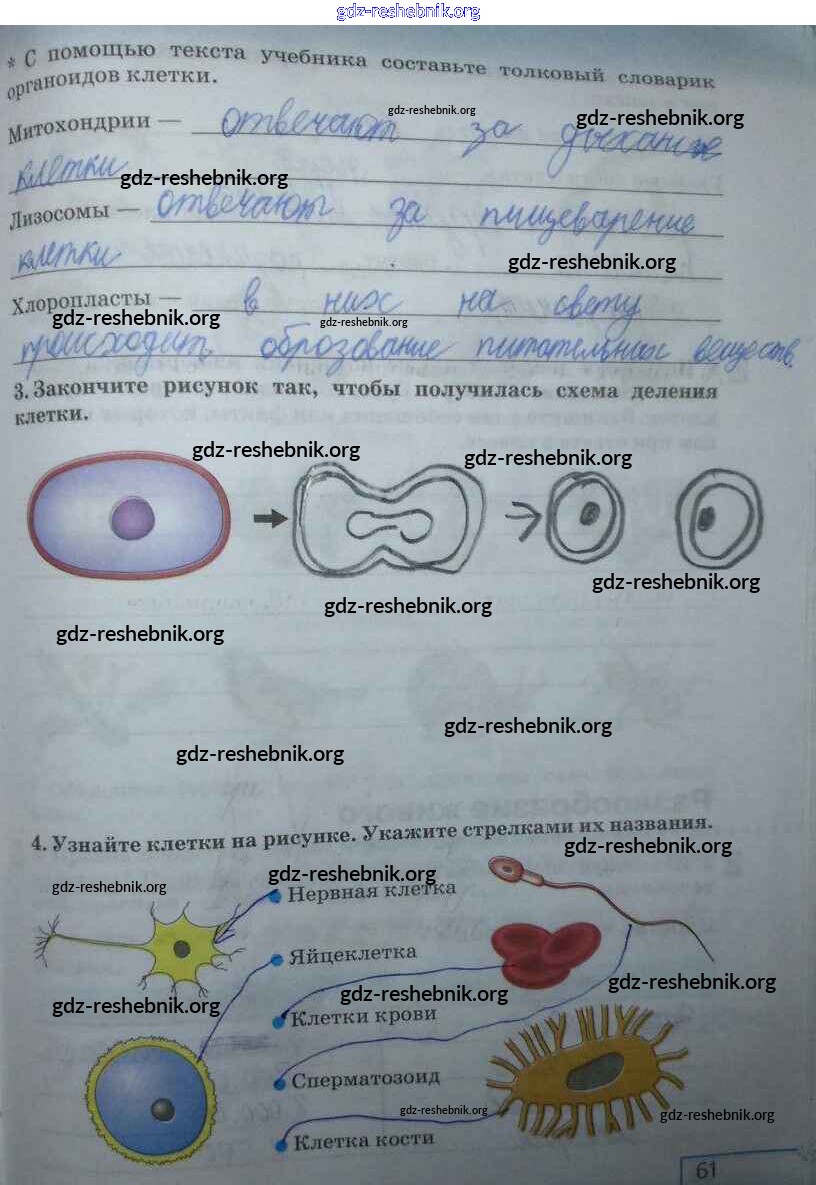 gdz-reshebnik.org
* С помощью текста учебника составьте толковый словарик
органоидов клетки.
gdz-reshebnik.org
gdz-reshebnik.org
Митохондрии — отвечают за дыхание
клетки
gdz-reshebnik.org
Лизосомы — отвечают за пищеварение
клетки
gdz-reshebnik.org
Хлоропласты — в них на свету
gdz-reshebnik.org
gdz-reshebnik.org
происходит образование питательных веществ.
3. Закончите рисунок так, чтобы получилась схема деления
клетки.
gdz-reshebnik.org
gdz-reshebnik.org
gdz-reshebnik.org
gdz-reshebnik.org
gdz-reshebnik.org
gdz-reshebnik.org
gdz-reshebnik.org
4. Узнайте клетки на рисунке. Укажите стрелками их названия.
gdz-reshebnik.org
gdz-reshebnik.org
gdz-reshebnik.org
Нервная клетка
Яйцеклетка
gdz-reshebnik.org
gdz-reshebnik.org
gdz-reshebnik.org
Клетки крови
Сперматозоид
gdz-reshebnik.org
gdz-reshebnik.org
Клетка кости
61